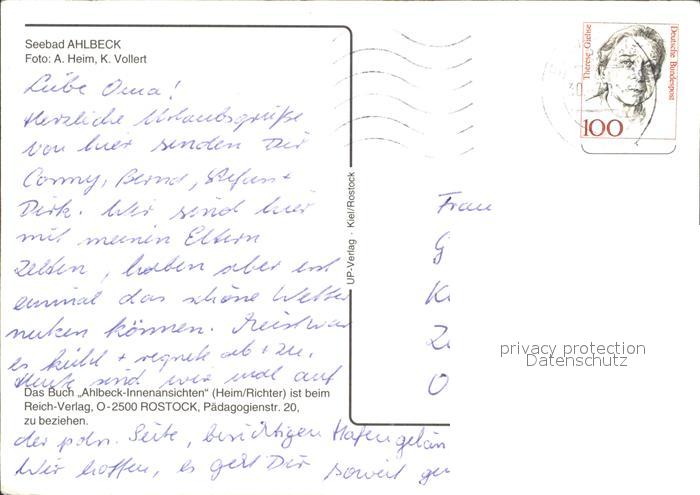 Seebad AHLBECK
Foto: A. Heim, K. Vollert
Liebe Oma!
Herzliche Urlaubsgrüße
von hier senden Dir
Conny, Bernd, Stefan +
Dirk. Wir sind hier
mit meinen Eltern
zelten, haben aber erst
einmal das schöne Wetter
nutzen können. Meist war
es kühl + regnete ab + zu.
Heute sind wir mal auf
Das Buch „Ahlbeck-Innenansichten" (Heim/Richter) ist beim
Reich-Verlag, O-2500 ROSTOCK, Pädagogienstr. 20,
zu beziehen.
der poln. Seite, besichtigen Hafengelän
Wir hoffen, es geht Dir soweit gu
UP-Verlag · Kiel/Rostock
Therese Giehse
Deutsche Bundespost
100
Frau
G
K
Z
O
privacy protection
Datenschutz